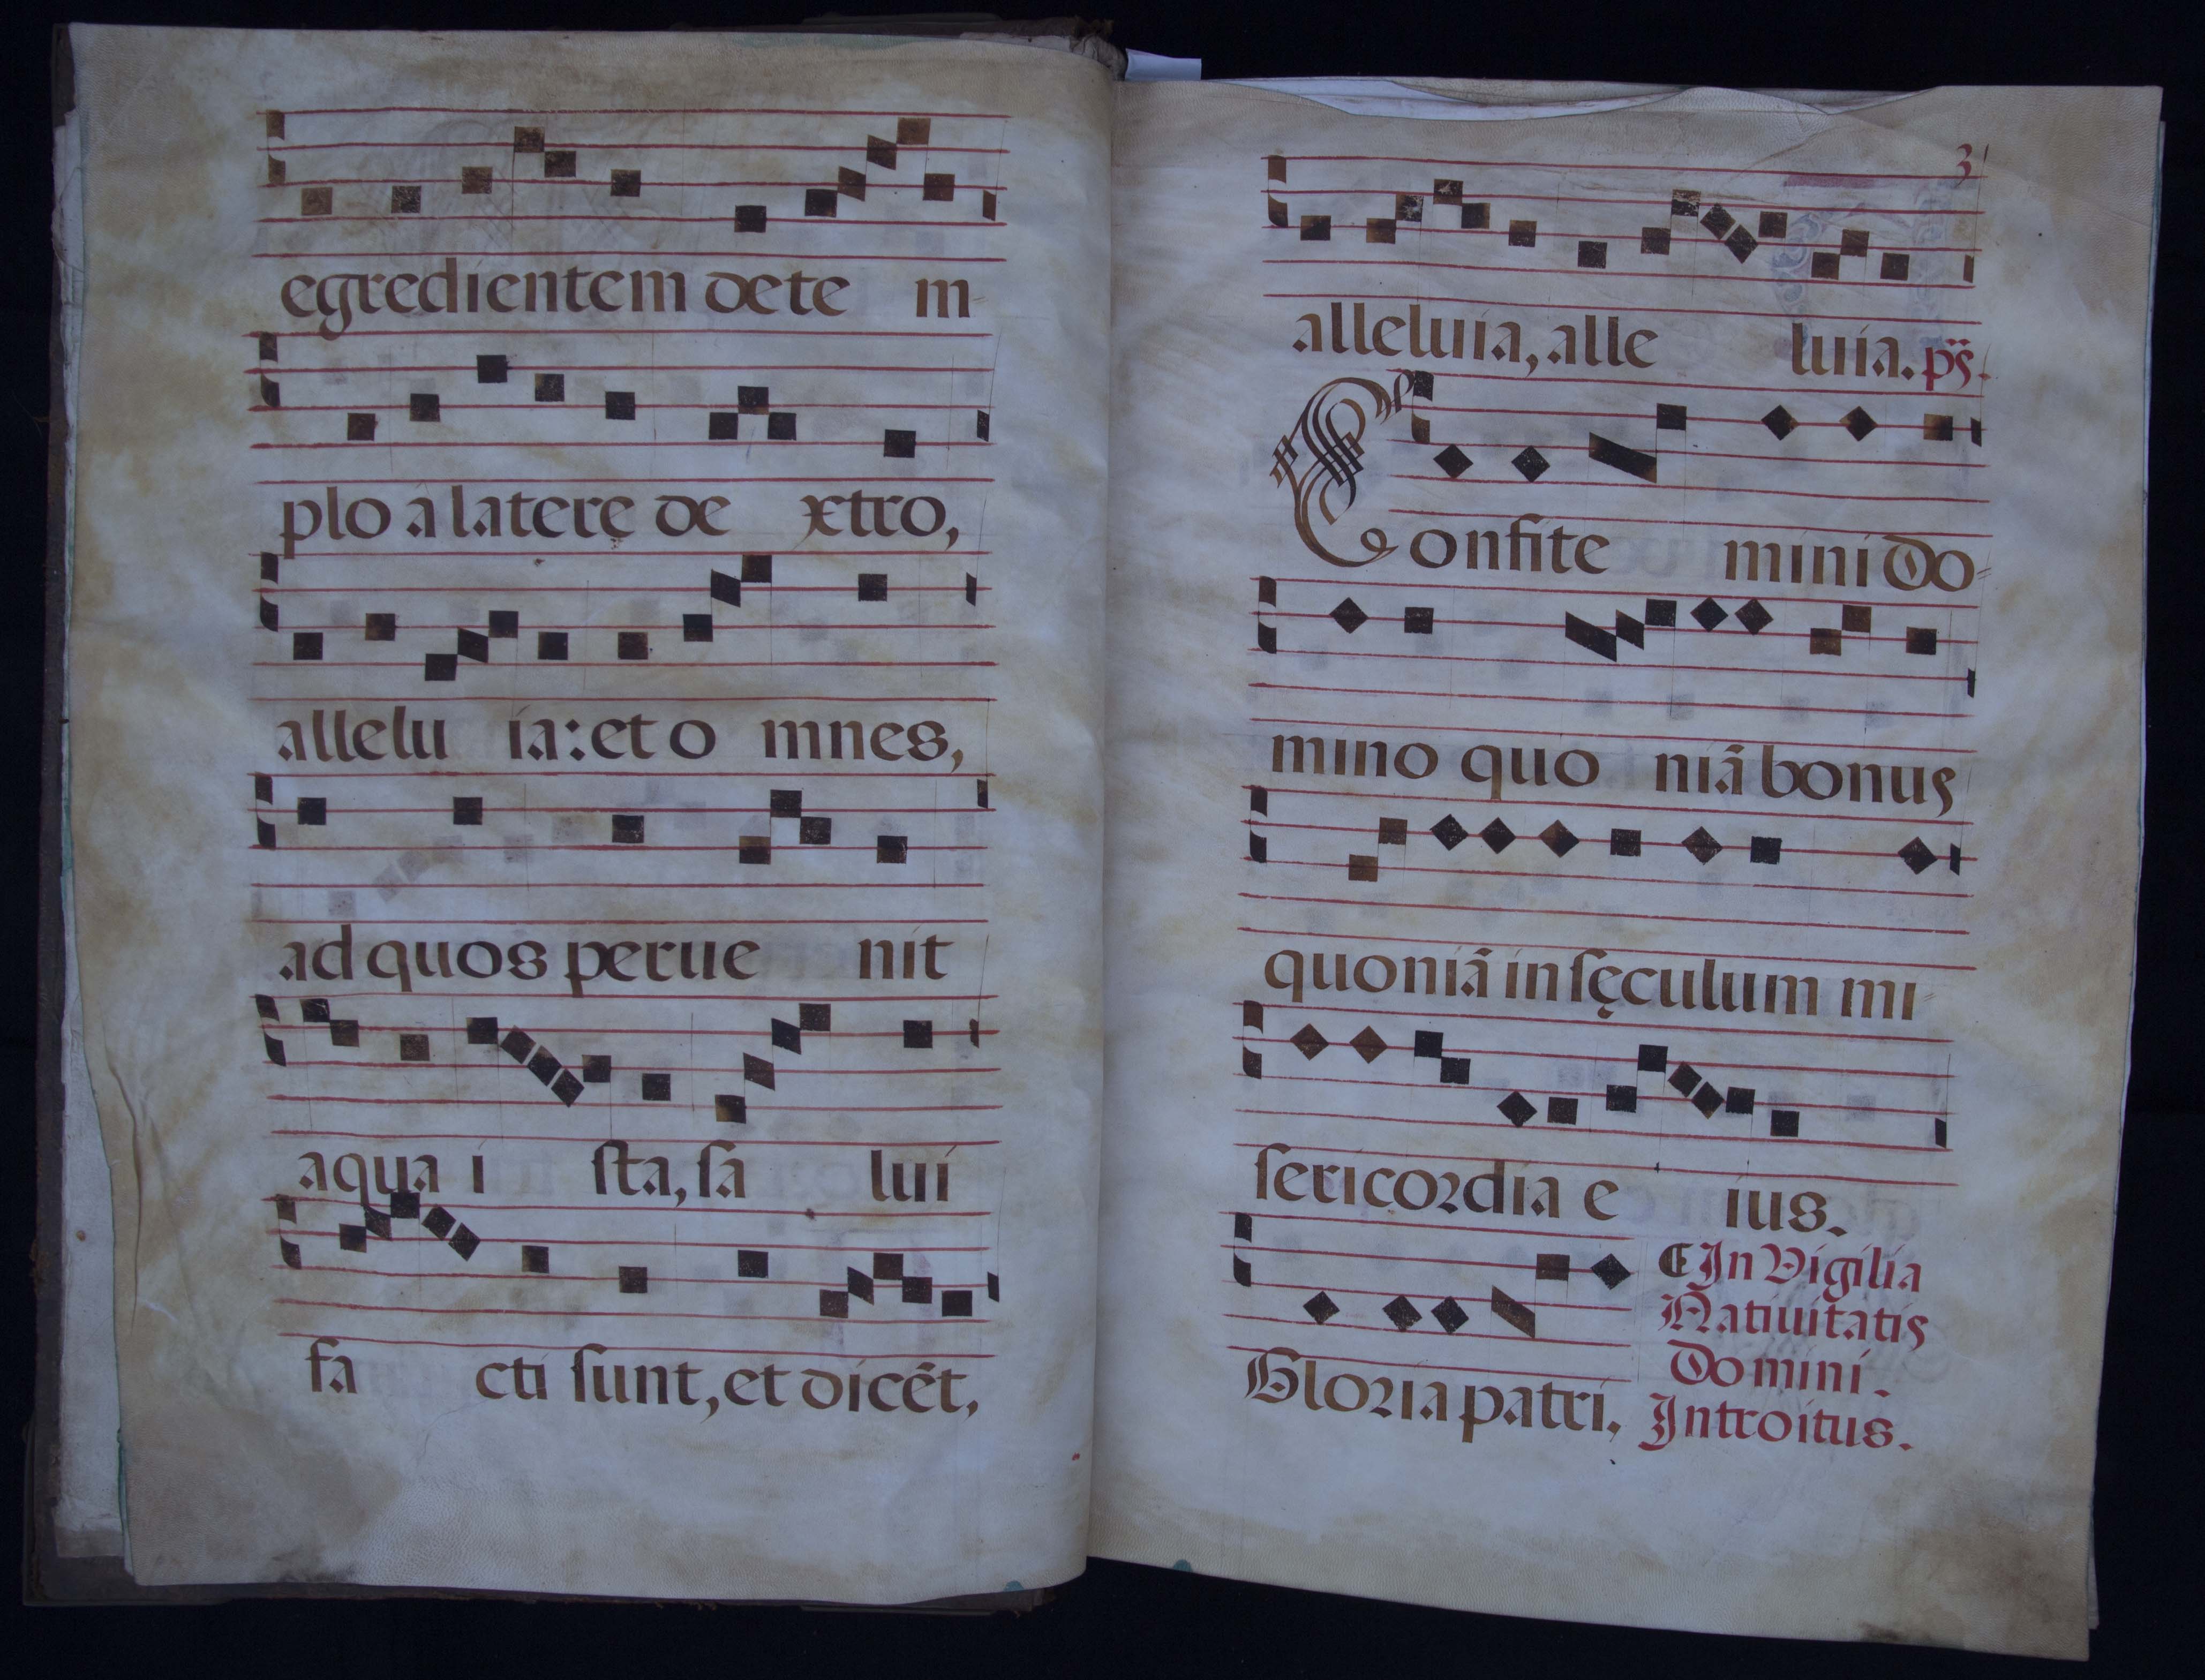 egredientem de te m-
plo â latere de xtro,
allelu ia: et o mnes,
ad quos perue nit
aqua i sta, sa lui
fa cti sunt, et dicẽt,
3
alleluia, alle luia. ps.
Confite mini Do-
mino quo niã bonus
quoniã in sęculum mi-
sericordia e ius.
Gloria patri.
In Vigilia
Natiuitatis
Domini.
Introitus.